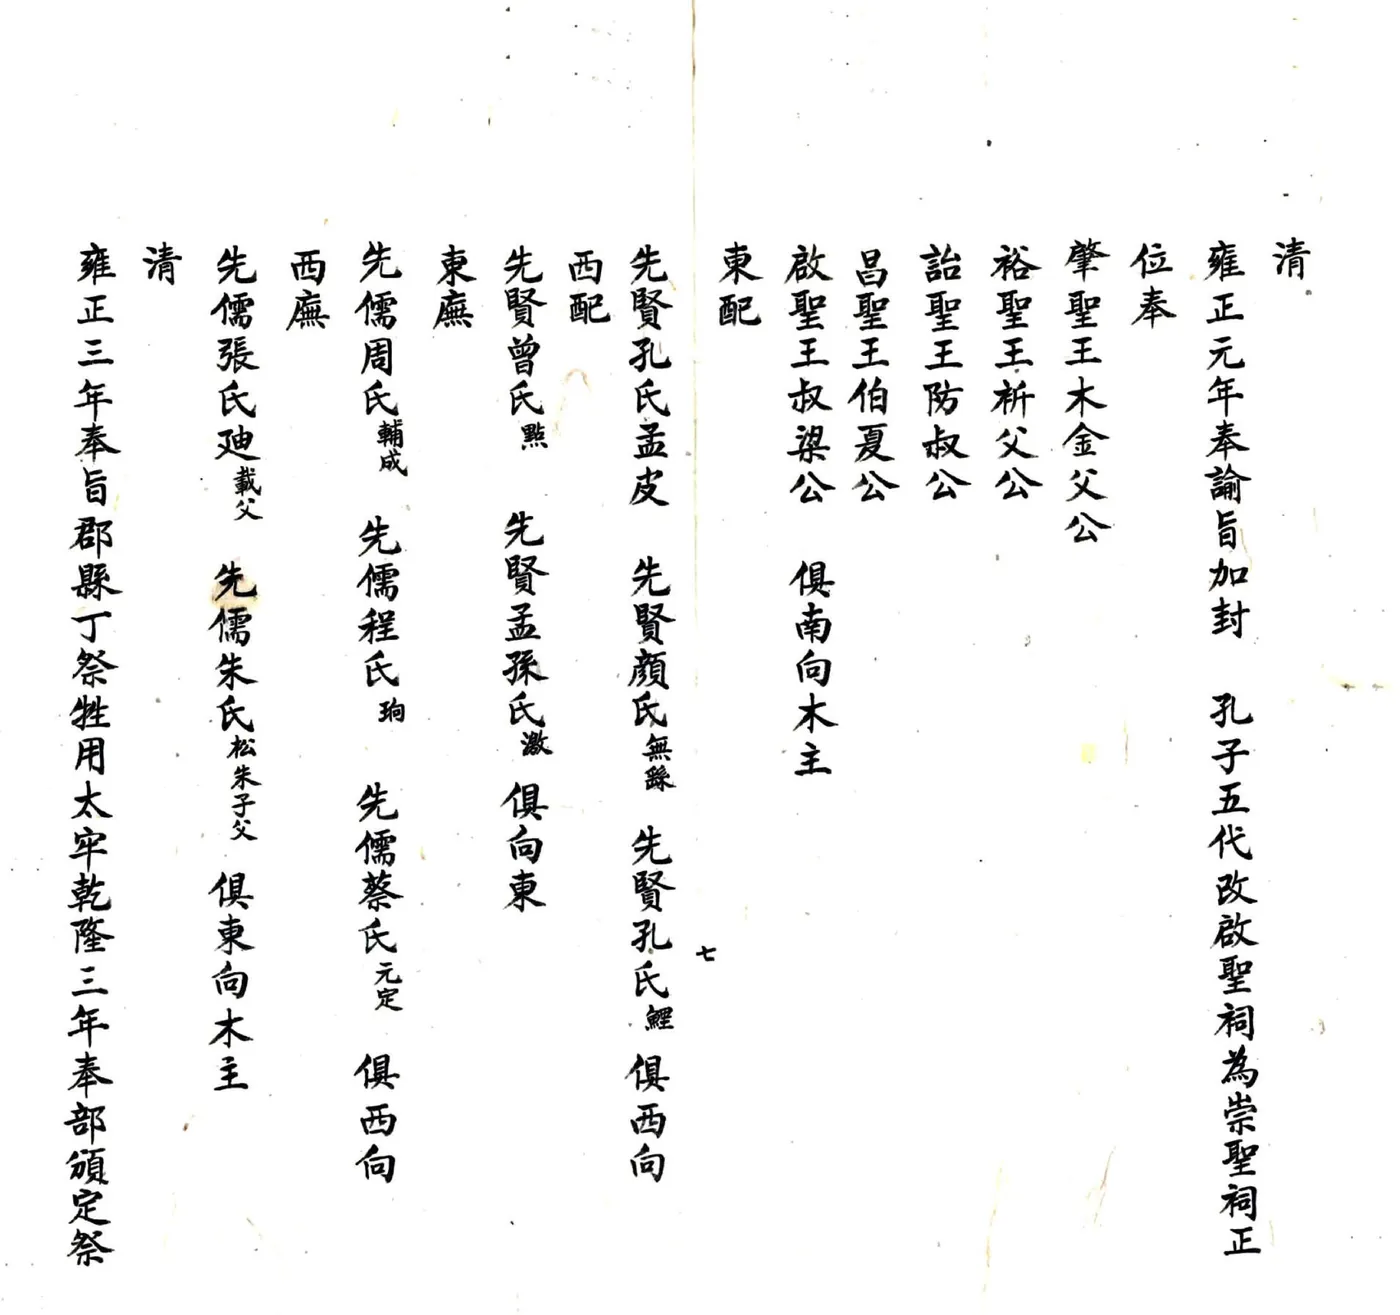 清
雍正元年奉諭旨加封　孔子五代改啟聖祠為崇聖祠正
位奉
肇聖王木金父公
裕聖王祈父公
詒聖王防叔公
昌聖王伯夏公
啟聖王叔梁公　俱南向木主
東配
先賢孔氏孟皮　先賢顏氏無繇　先賢孔氏鯉　俱西向
西配
先賢曾氏點　先賢孟孫氏激　俱向東
東廡
先儒周氏輔成　先儒程氏珦　先儒蔡氏元定　俱西向
西廡
先儒張氏廸載父　先儒朱氏松朱子父　俱東向木主
清
雍正三年奉旨郡縣丁祭牲用太牢乾隆三年奉部頒定祭
七